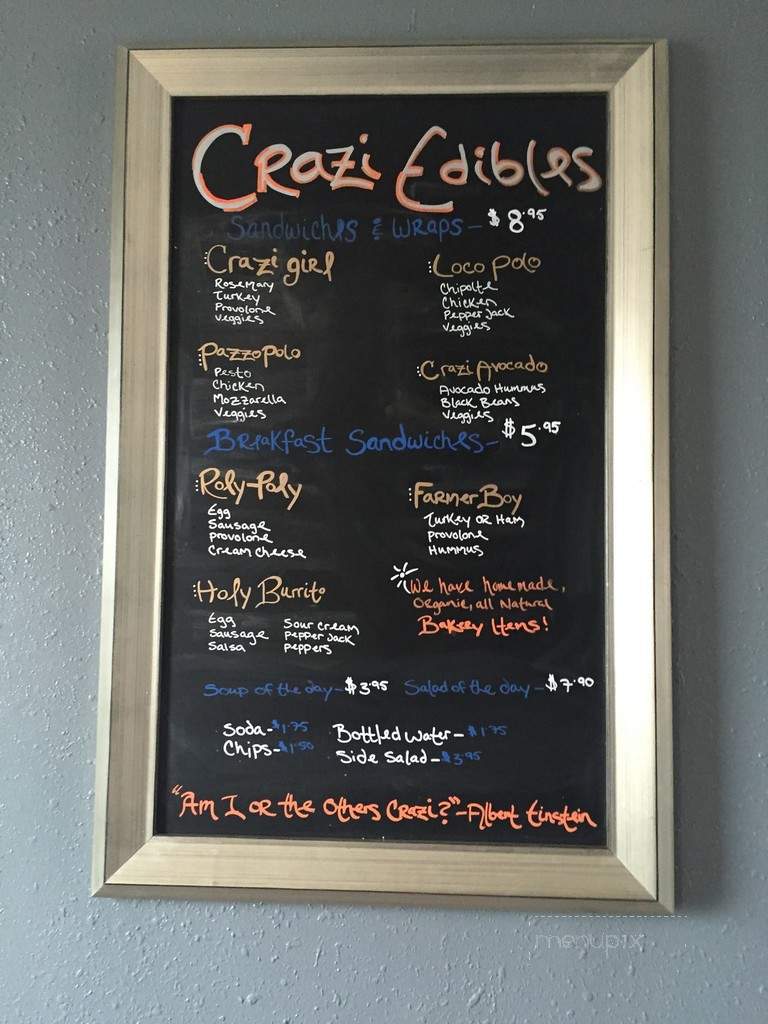 Crazi Edibles
Sandwiches & Wraps - $8.95
Crazi girl
Rosemary
Turkey
Provolone
Veggies
Loco Polo
Chipolte
Chicken
Pepper Jack
Veggies
Pazzo Polo
Pesto
Chicken
Mozzarella
Veggies
Crazi Avocado
Avocado Hummus
Black Beans
Veggies
Breakfast Sandwiches - $5.95
Roly-Poly
Egg
Sausage
Provolone
Cream cheese
Farmer Boy
Turkey or Ham
Provolone
Hummus
Holy Burrito
Egg
Sausage
Salsa
Sour cream
Pepper Jack
Peppers
We have homemade,
Organic, all Natural
Bakery Items!
Soup of the day - $3.95 Salad of the day - $7.90
Soda - $1.75 Bottled Water - $1.75
Chips - $1.50 Side Salad - $3.95
"Am I or the Others Crazi?" - Albert Einstein
menupix